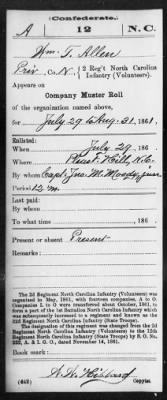 Confederate.
A 12 N.C.
Wm. T. Allen
Priv, Co. N, 2 Reg't North Carolina
Infantry (Volunteers).
Appears on
Company Muster Roll
of the organization named above,
for July 29 to Aug. 31, 1861.
Enlisted:
When July 29, 186 .
Where N.C.
By whom Capt. Jas. M.
Period 12 m.
Last paid:
By whom
To what time , 186 .
Present or absent Present
Remarks:
The 2d Regiment North Carolina Infantry (Volunteers) was
organized in May, 1861, with fourteen companies, A to O.
Companies L to O were transferred about October, 1861, to
form a part of the 1st Battalion North Carolina Infantry
which was subsequently increased to a regiment and known as the
Infantry (State Troops).
The designation of this regiment was changed from the 2d
Regiment North Carolina Infantry (Volunteers) to the 12th
Regiment North Carolina Infantry (State Troops) by S. O. No.
A. & I. G. O., dated November 14, 1861.
Book mark:
(642)
Copyist.